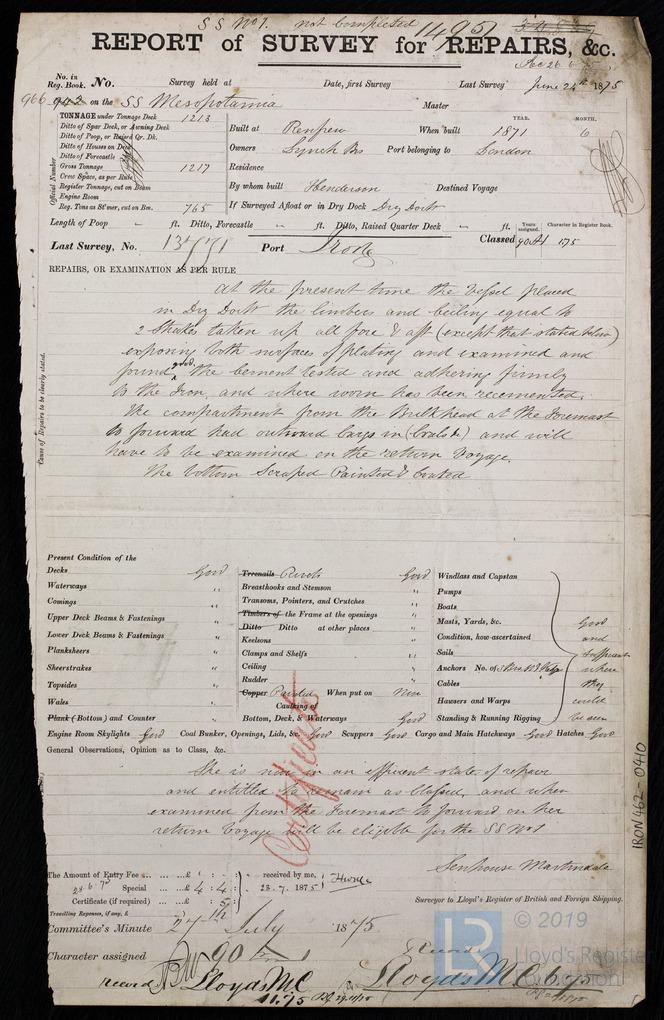 S S No 1. not completed 1495
REPORT of SURVEY for REPAIRS, &c.
No. in Reg. Book. No. Survey held at Date, first Survey Last Survey June 24th 1875
966 942 on the SS Mesopotamia Master
TONNAGE under Tonnage Deck 1213
Ditto of Spar Deck, or Awning Deck
Ditto of Poop, or Raised Qr. Dk.
Ditto of Houses on Deck
Ditto of Forecastle
Gross Tonnage 1217
Crew Space, as per Rule
Register Tonnage, cut on Beam
Engine Room
Reg. Tons as St'mer, cut on Bm. 765
Official Number
YEAR. MONTH.
Built at Renfrew When built 1871 6
Owners Lynch Bros Port belonging to London
Residence
By whom built Henderson Destined Voyage
If Surveyed Afloat or in Dry Dock Dry Dock
Length of Poop ft. Ditto, Forecastle ft. Ditto, Raised Quarter Deck ft.
Years assigned. Character in Register Book.
Last Survey, No. 13771 Port Iron Classed 90A1 175
REPAIRS, OR EXAMINATION AS PER RULE
Cause of Repairs to be clearly stated.
At the present time the Vessel placed
in Dry Dock the limbers and ceiling equal to
2 Strakes taken up all fore & aft (except that stated below)
exposing both surfaces of plating and examined and
found good. The Cement tested and adhering firmly
to the Iron, and where worn has been recemented.
The compartment from the Bulkhead at the Foremast
to forward had outward Cargo in (Coals &c) and will
have to be examined on the return Voyage.
The bottom Scraped Painted & Coated
Present Condition of the
Decks Good
Waterways "
Comings "
Upper Deck Beams & Fastenings "
Lower Deck Beams & Fastenings "
Planksheers "
Sheerstrakes "
Topsides "
Wales "
Plank (Bottom) and Counter "
Treenails Rivets Good
Breasthooks and Stemson "
Transoms, Pointers, and Crutches "
Timbers of the Frame at the openings "
Ditto Ditto at other places "
Keelsons "
Clamps and Shelfs "
Ceiling "
Rudder "
Copper Paint When put on Now
Caulking of
Bottom, Deck, & Waterways Good
Windlass and Capstan
Pumps
Boats
Masts, Yards, &c.
Condition, how ascertained
Sails
Anchors No. of
Cables
Hawsers and Warps
Standing & Running Rigging
Good and sufficient where they could be seen
Engine Room Skylights Good Coal Bunker, Openings, Lids, &c. Good Scuppers Good Cargo and Main Hatchways Good Hatches Good
General Observations, Opinion as to Class, &c.
She is now in an efficient state of repair
and entitled to remain as Classed, and when
examined from the Foremast to forward on her
return Voyage will be eligible for the SS No 1
Certificate
Senhouse Martindale
Surveyor to Lloyd's Register of British and Foreign Shipping.
The Amount of Entry Fee ... £ : : received by me,
28.6.75 Special ... £ 4 : 4 : 23.7.1875
Certificate (if required) ... : 5 :
Travelling Expenses, if any, £
Committee's Minute 27th July 1875
Character assigned 90 A 1
Record Lloyds MC
11.75
Lloyds MC
IRON 462 - 0410
LR
© 2019
Lloyd's Register
Foundation